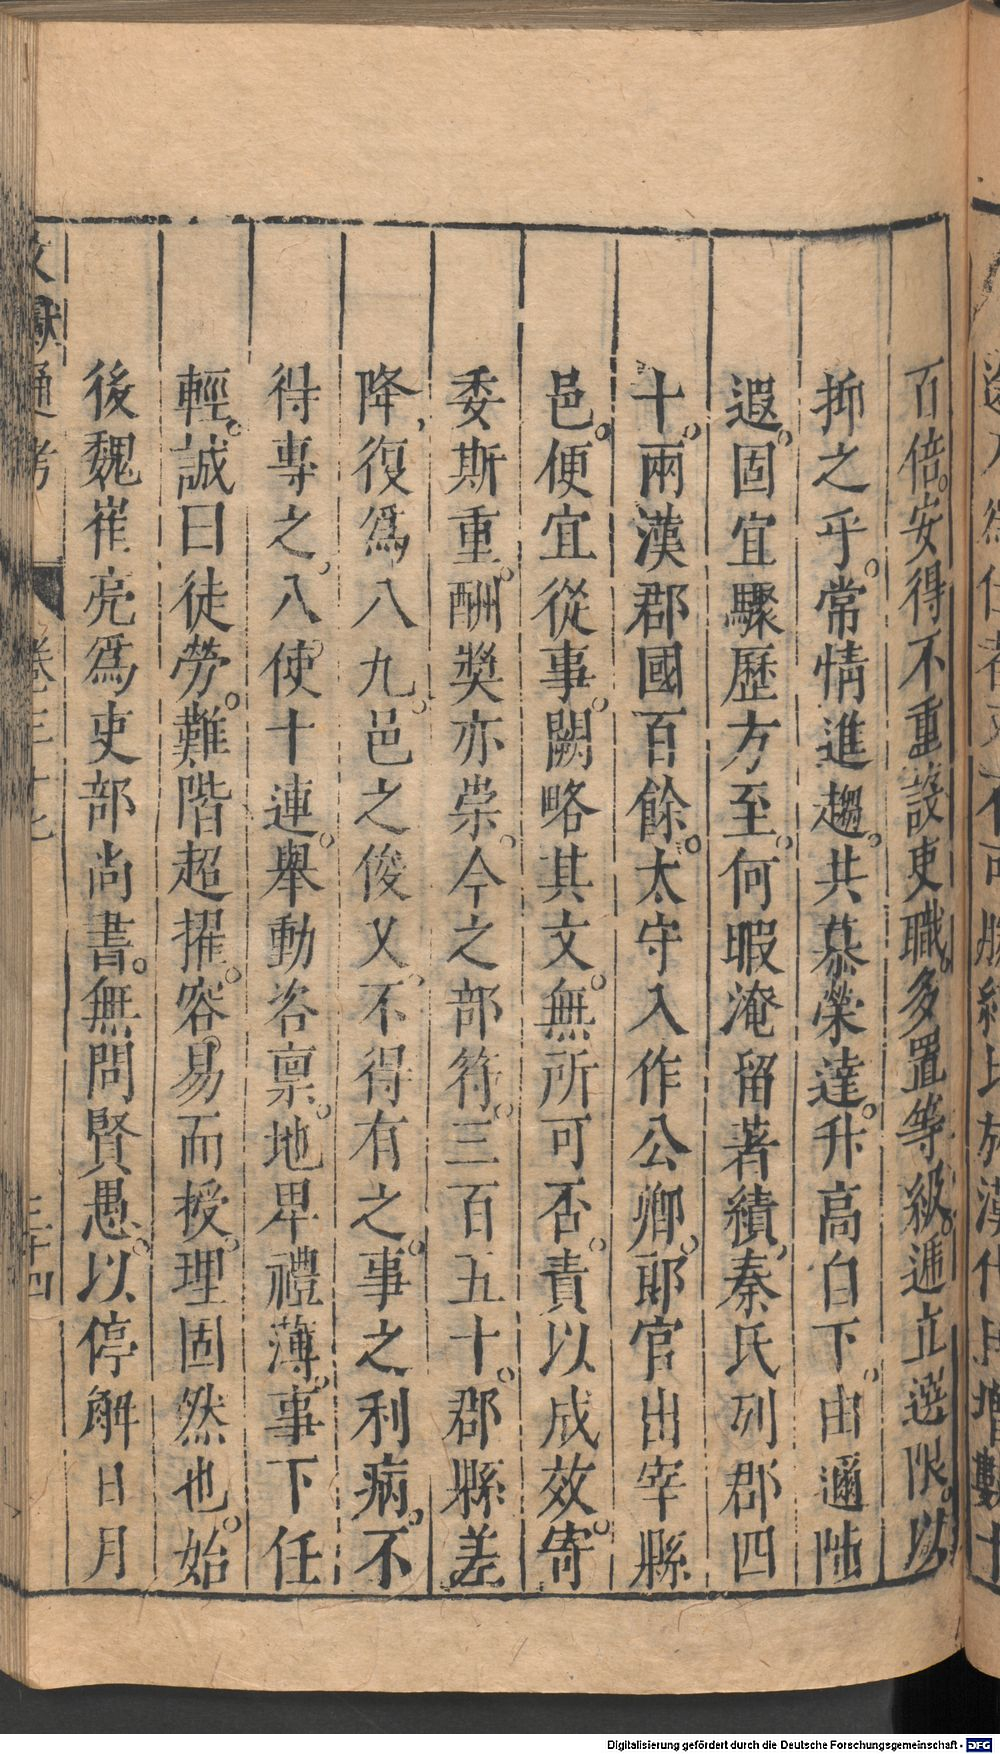 百倍。安得不重設吏職。多置等級。遞立選限。以
抑之乎。常情進趨。共慕榮達。升高自下。由邇陟
遐。固宜驟歷方至。何暇淹留著績。秦氏列郡四
十。兩漢郡國百餘。太守入作公卿。郎官出宰縣
邑。便宜從事。闕略其文。無所可否。責以成效。寄
委斯重。酬獎亦崇。今之部符。三百五十。郡縣差
降，復爲八九。邑之俊乂。不得有之。事之利病。不
得專之。八使十連。舉動咨稟。地卑禮薄。事下任
輕。誠曰徒勞。難階超擢。容易而授。理固然也。始
後魏崔亮爲吏部尚書。無問賢愚。以停解日月
文獻通考
卷三十七
三十四
Digitalisierung gefördert durch die Deutsche Forschungsgemeinschaft - DFG